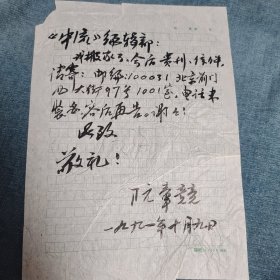 《中流》编辑部：
我搬家了，今后贵刊、信件
请寄：邮编：100031 北京前门
西大街97号1001室。电话未
装者容后再告。谢谢！
此致
敬礼！
阮章竞
一九九一年十月九日